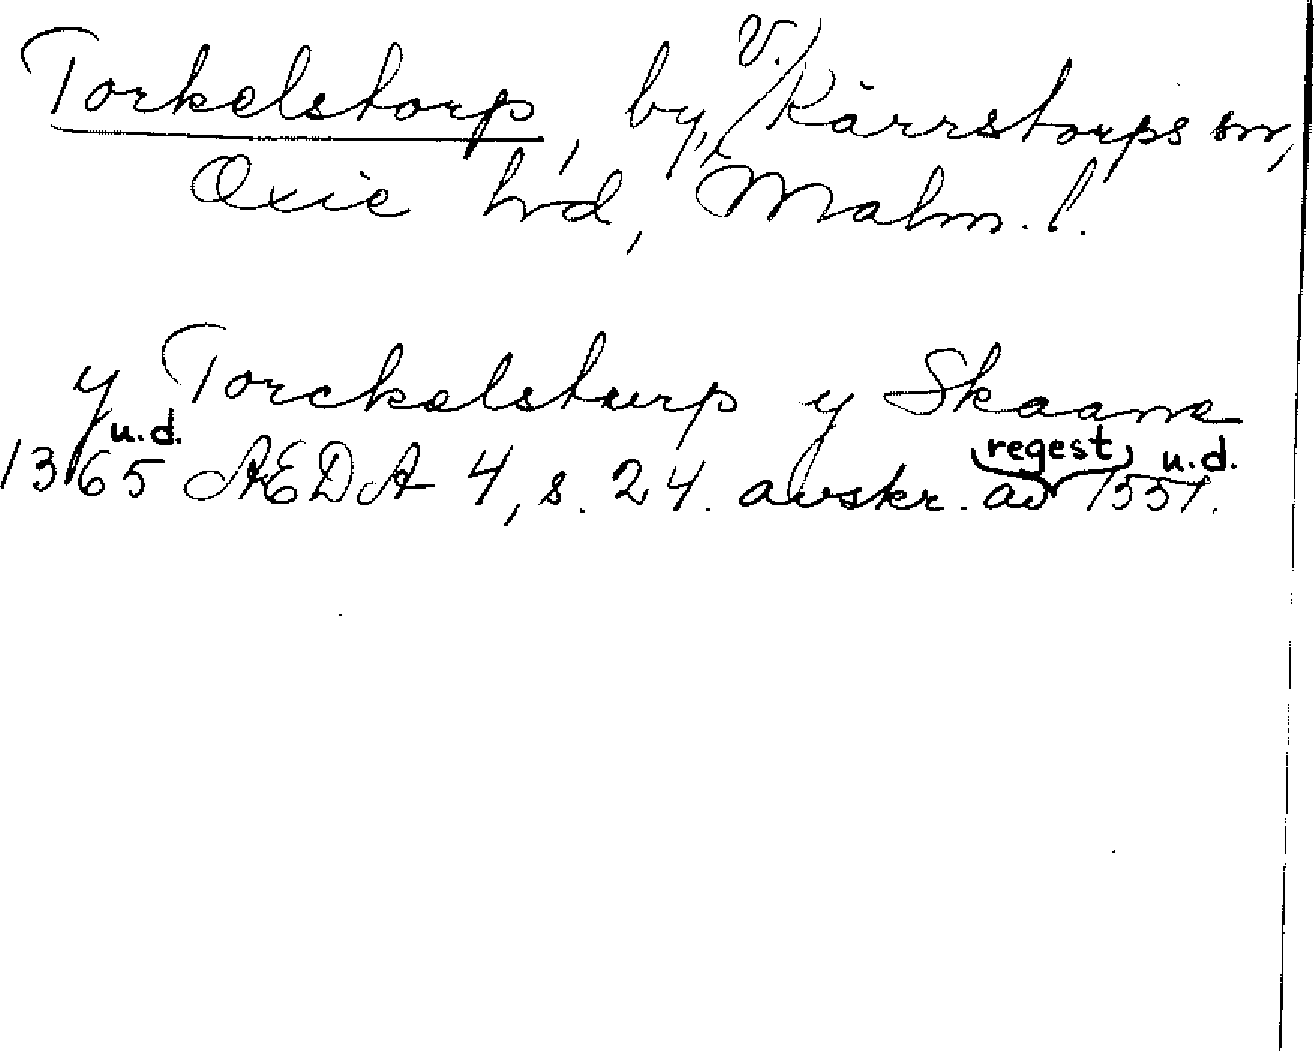 Torkelstorp, by, V. Kärrstorps sn,
Oxie hd, Malm. l.
y Torckelsturp y Skaane
1365 u.d. AEDA 4, s. 24. avskr. av regest 1551 u.d.